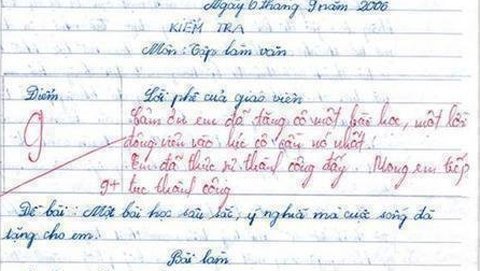 Ngày 6 tháng 9 năm 2006
KIỂM TRA
Môn: Tập làm văn
Điểm
Lời phê của giáo viên
9
Cảm ơn em đã tặng cô một bài học, một lời
động viên vào lúc cô cần nó nhất.
Em đã thực sự thành công đấy. Mong em tiếp
9+ tục thành công
Đề bài: Một bài học sâu sắc, ý nghĩa mà cuộc sống đã
tặng cho em.
Bài làm